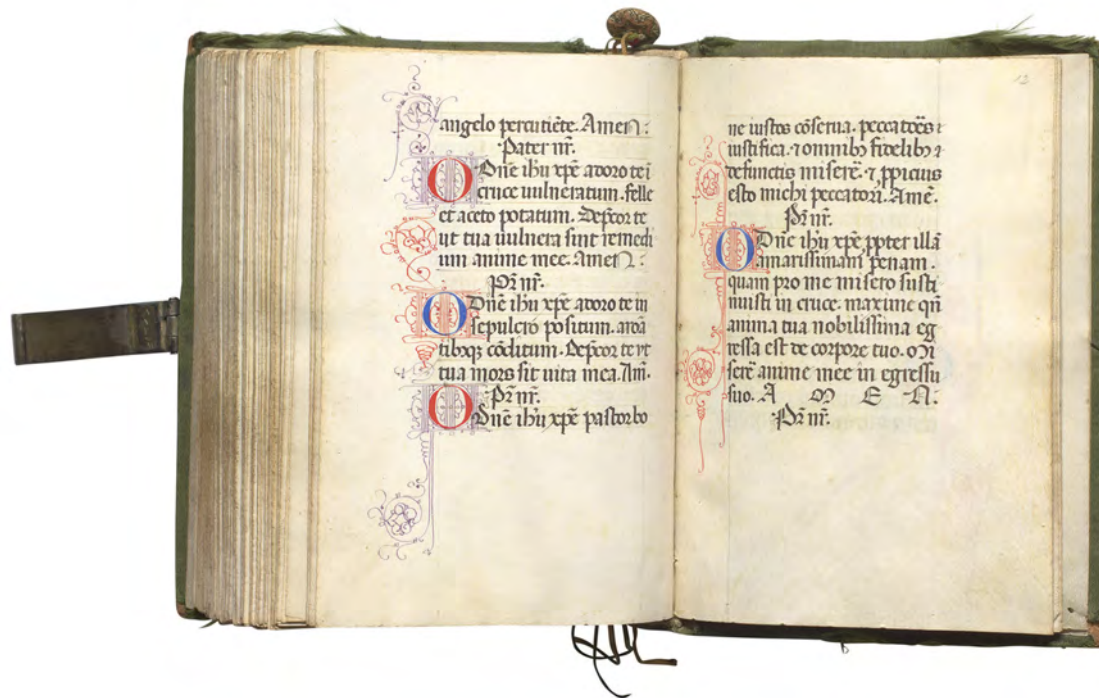 angelo percutiēte. Amen:
Pater nr̄.
O Dn̄e ihū xp̄e adoro te ī
cruce uulneratum. felle
et aceto potatum. Dep̄cor te
ut tua uulnera sint remedi
um anime mee. Amen:
Pr̄ nr̄.
O Dn̄e ihū xp̄e adoro te in
sepulcro positum. aroā
tibꝫqꝫ cōditum. Dep̄cor te vt
tua mors sit uita mea. Am̄.
Pr̄ nr̄.
O Dn̄e ihū xp̄e pastor bo
12
ne iustos cōserua. peccatores
iustifica. ⁊ omnibꝫ fidelibꝫ
defunctis miserē. ⁊ ꝓpicius
esto michi peccatori. Amē.
Pr̄ nr̄.
O Dn̄e ihū xp̄e ꝓpter illā
amarissimam penam.
quam pro me misero susti
nuisti in cruce. maxime qn̄
anima tua nobilissima eg
ressa est de corpore tuo. Mi
serē anime mee in egressu
suo. A M E N:
Pr̄ nr̄.